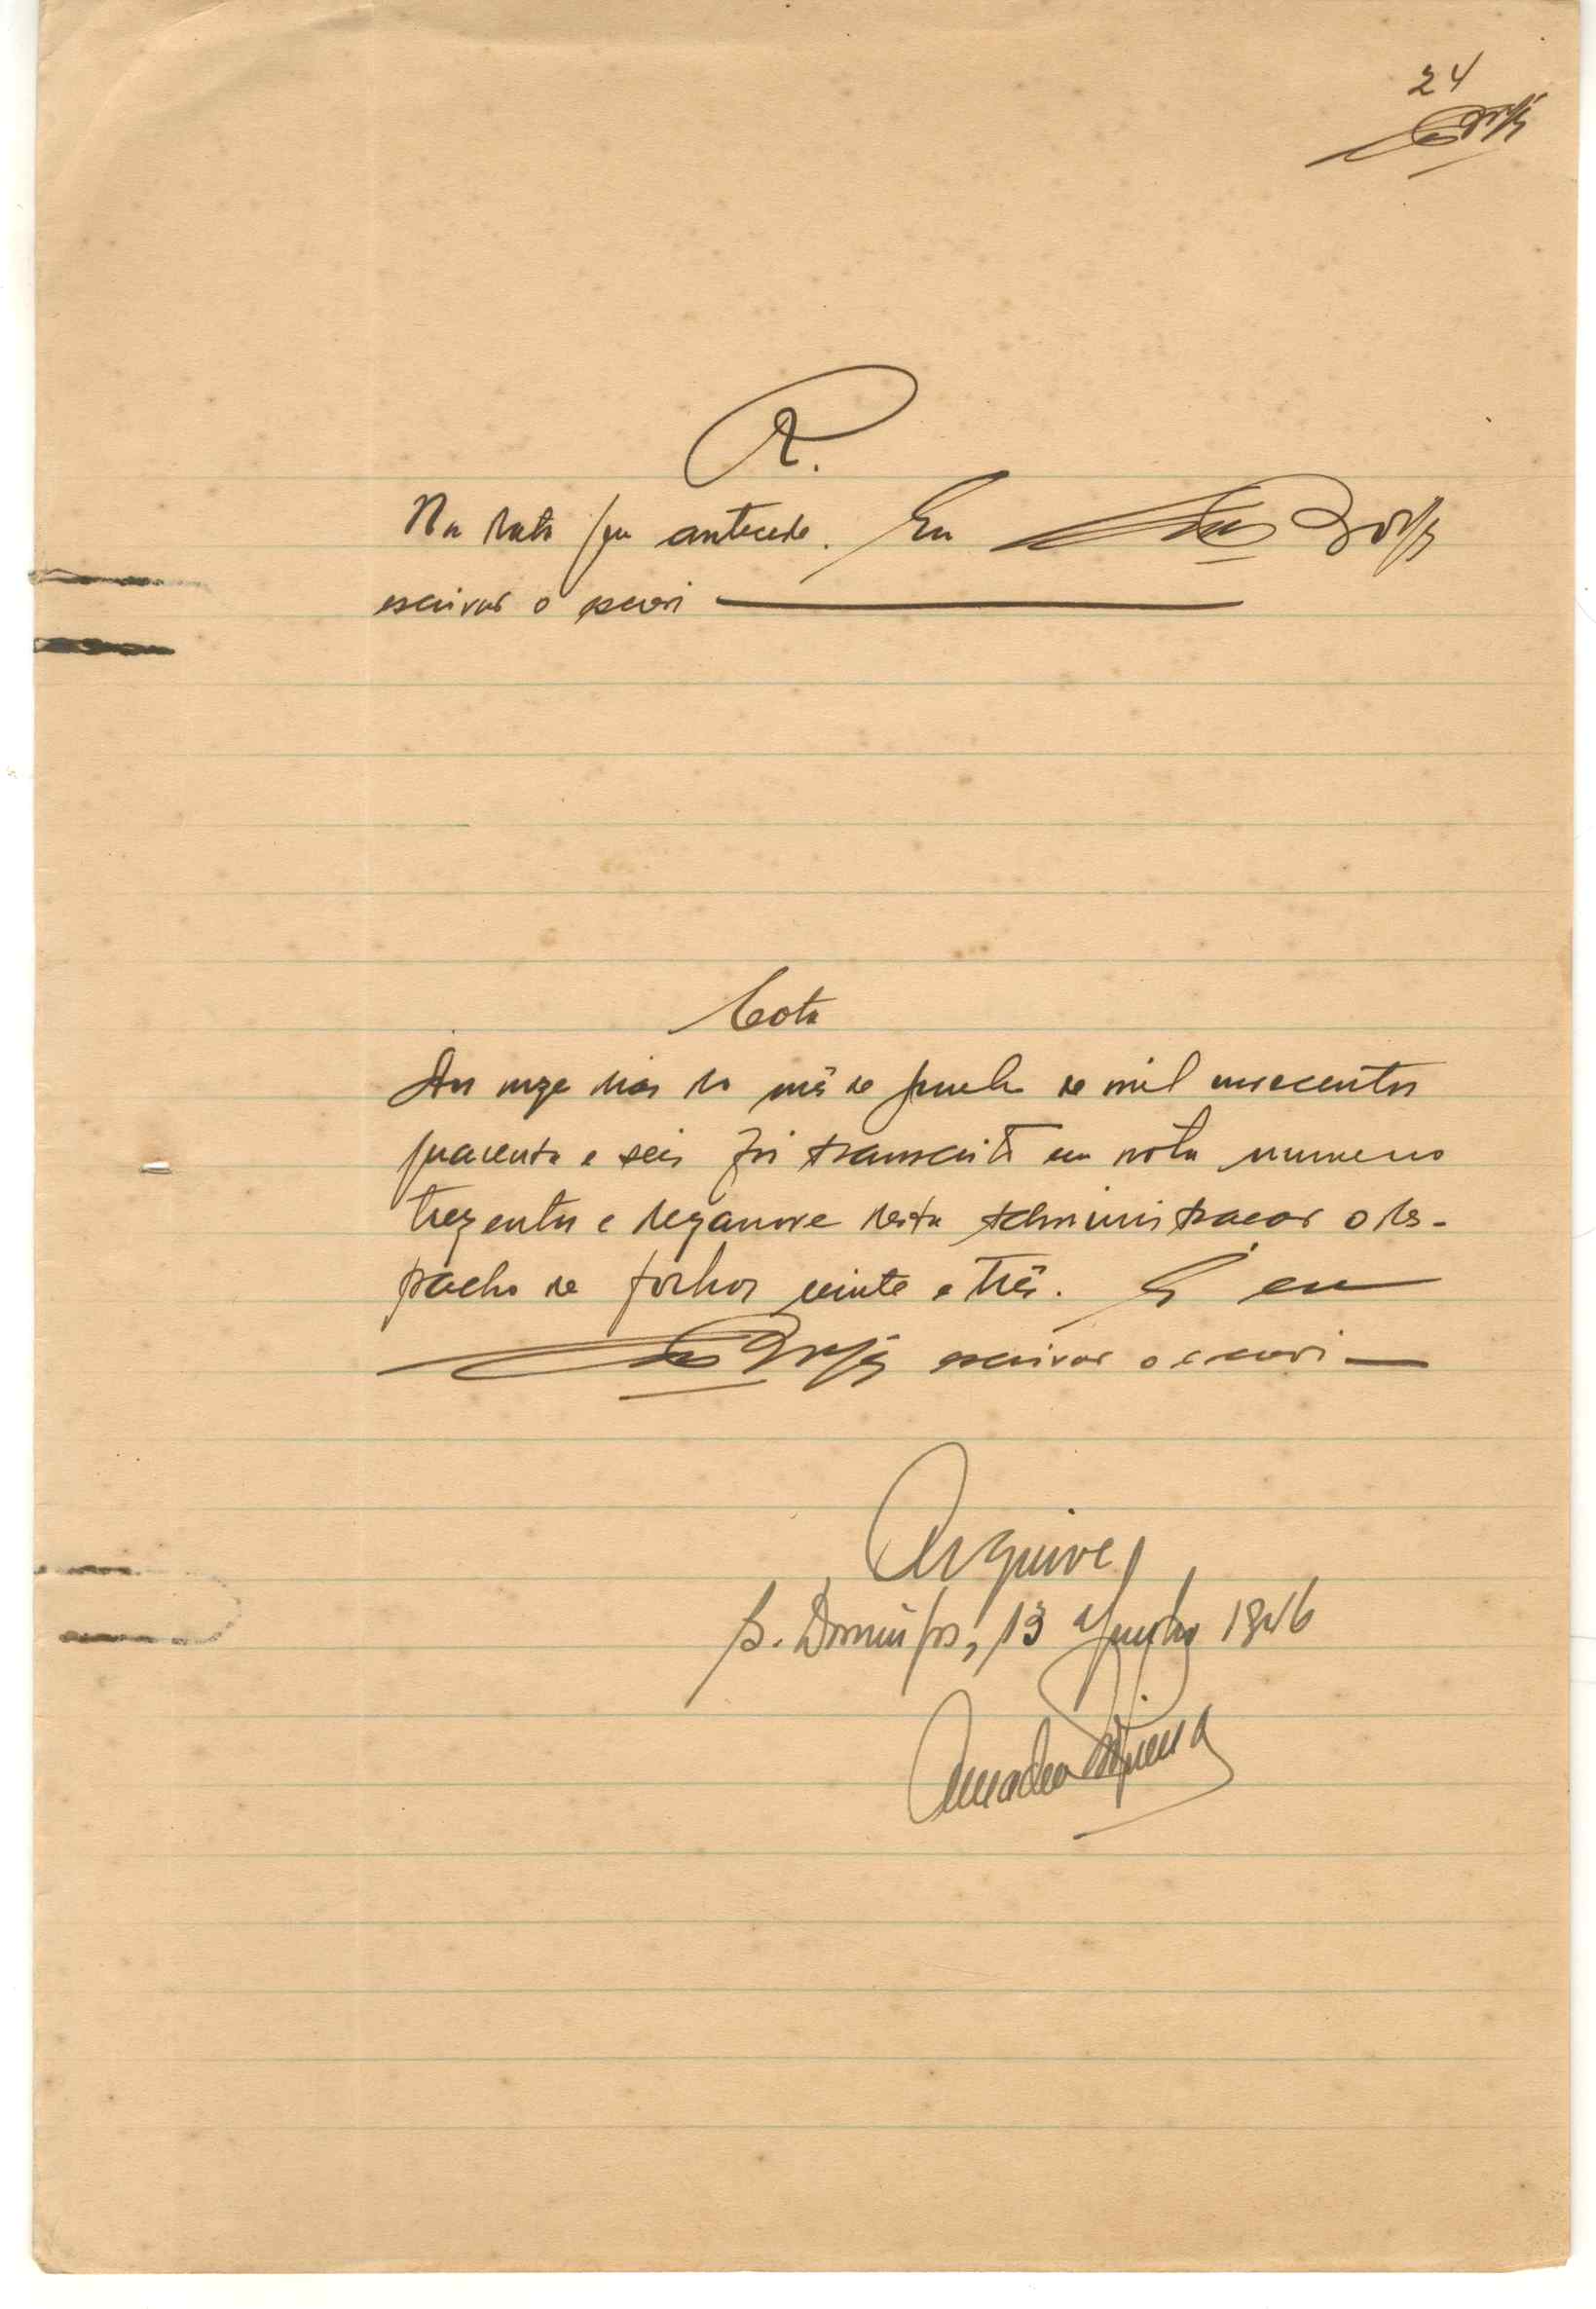 24
R.
Na data que antecede. Eu
escrivão o escrevi
Cota
Aos onze dias do mês de Junho de mil novecentos
quarenta e seis foi transcrito em nota numero
trezentos e dezanove desta administração o des-
pacho de folhas vinte e três. E eu
escrivão o escrevi
Arquive
S. Domingos, 13 Junho 1946
Amadeu